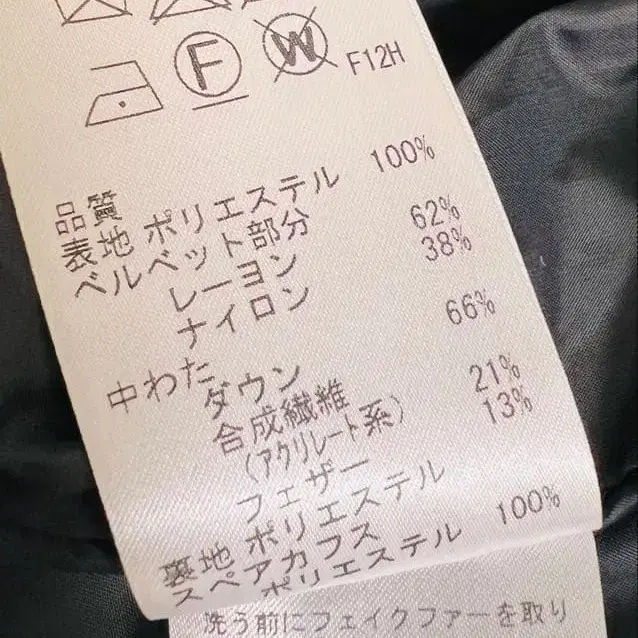 F
W
F12H
品質
表地 ポリエステル 100%
ベルベット部分
レーヨン 62%
ナイロン 38%
中わた
ダウン 66%
合成繊維 21%
(アクリレート系)
フェザー 13%
裏地 ポリエステル
スペアカフス
ポリエステル 100%
洗う前にフェイクファーを取り